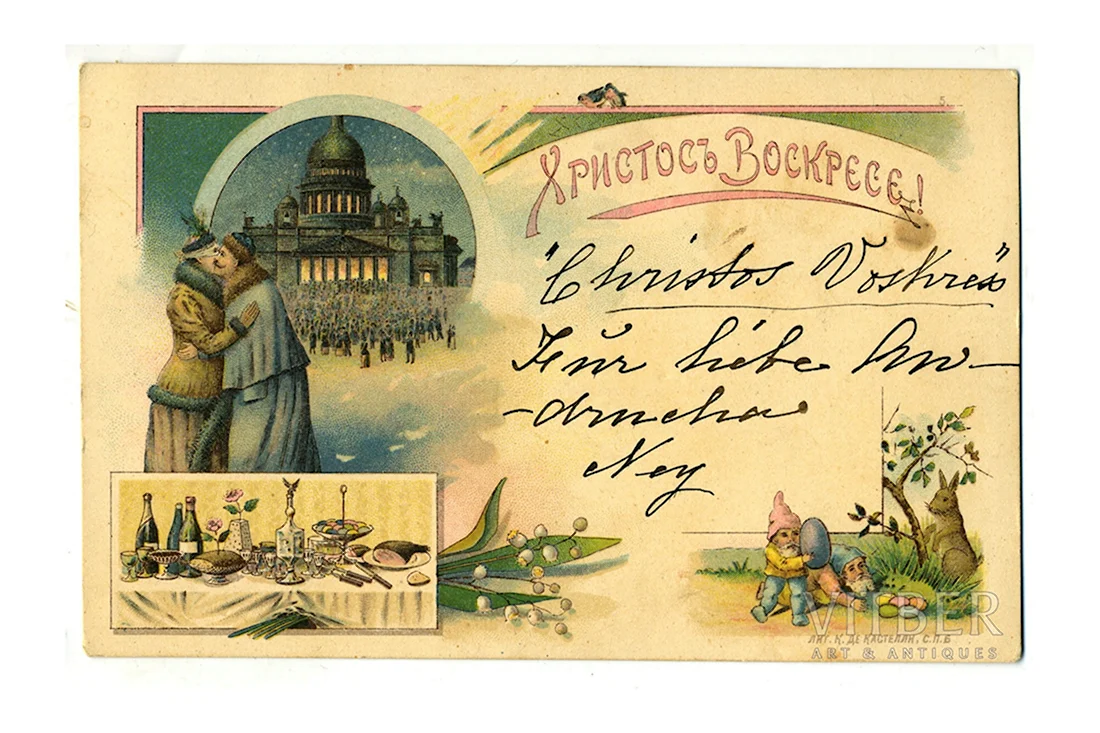 Христосъ Воскресе!
"Christos Voskres"
Für liebe An-
-druscha
Ney
ЛИТ. К. ДЕ КАСТЕЛЛИ, С.П.Б
VITBER
ART & ANTIQUES